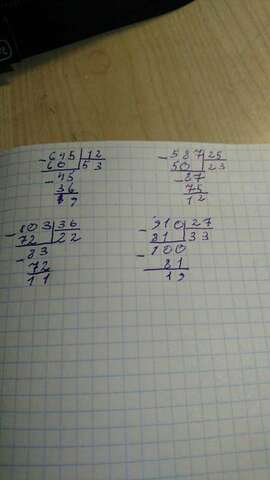 -645|12
60|53
-45
36
9
-587|25
50|23
-87
75
12
-803|36
72|22
-83
72
11
-910|27
81|33
-100
81
19